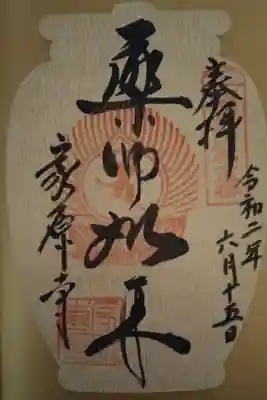 奉拝
令和二年
六月十五日
薬師如来
家原寺